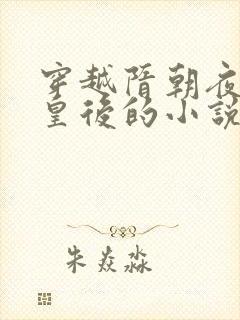 穿越隋朝夜
皇後的小說
朱焱淼